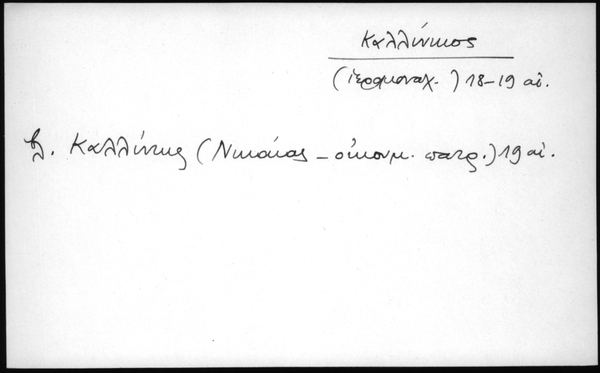 Καλλίνικος
(ἱερομοναχ.) 18-19 αἰ.
βλ. Καλλίνικος (Νικαίας - οἰκουμ. πατρ.) 19 αἰ.